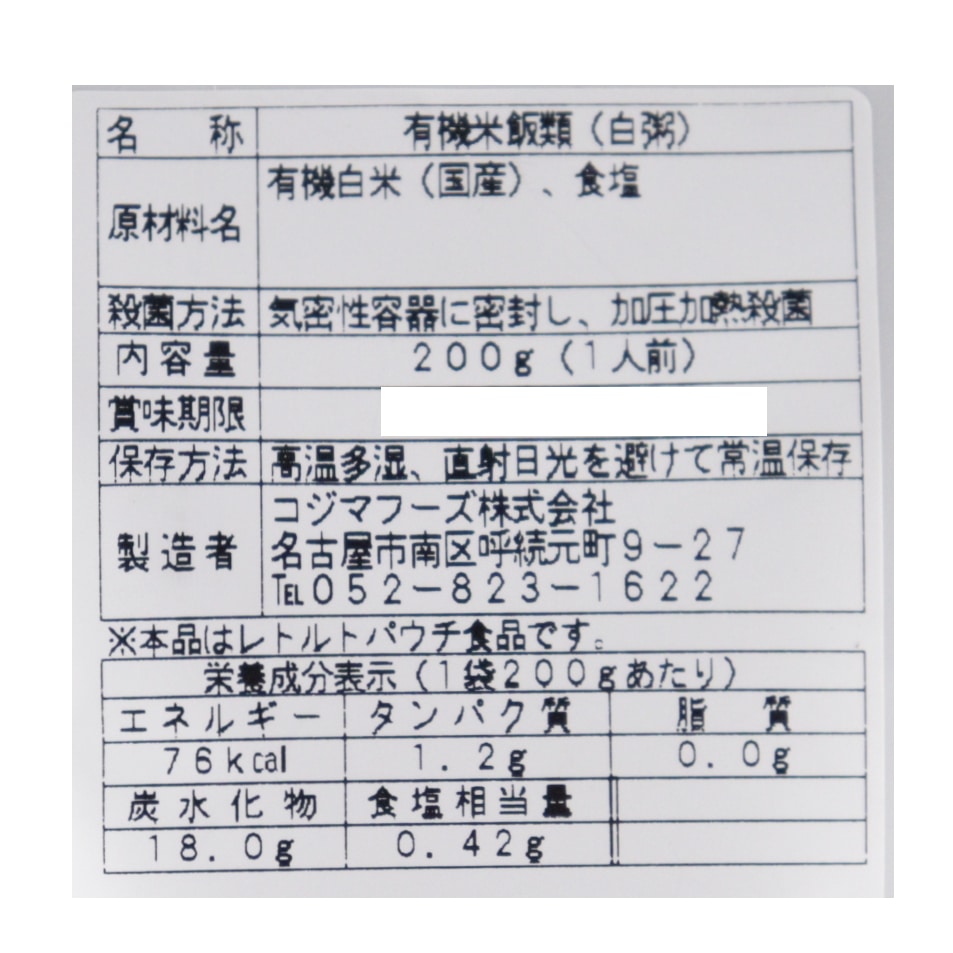 名称 有機米飯類（白粥）
原材料名 有機白米（国産）、食塩
殺菌方法 気密性容器に密封し、加圧加熱殺菌
内容量 200g（1人前）
賞味期限
保存方法 高温多湿、直射日光を避けて常温保存
製造者 コジマフーズ株式会社
名古屋市南区呼続元町9－27
℡052－823－1622
※本品はレトルトパウチ食品です。
栄養成分表示（1袋200gあたり）
エネルギー タンパク質 脂質
76kcal 1.2g 0.0g
炭水化物 食塩相当量
18.0g 0.42g